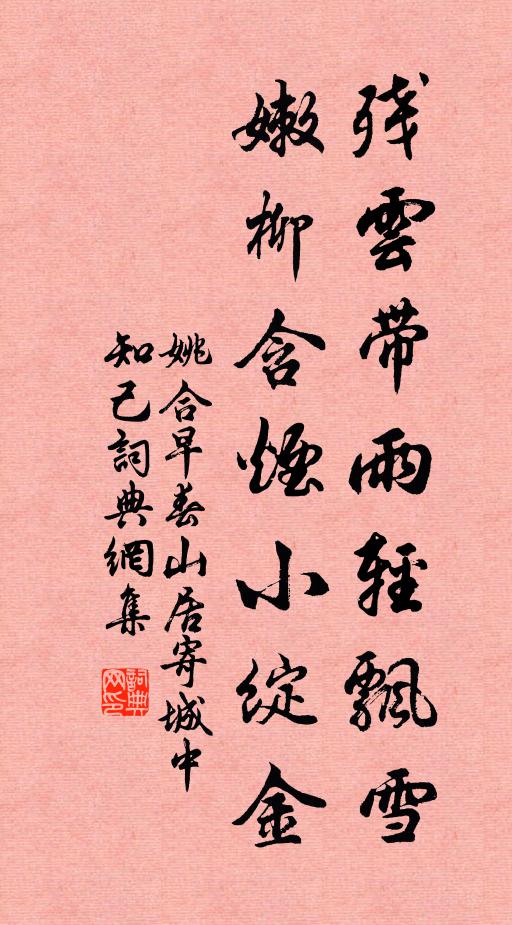 残雲带雨輕飄雪
嫩柳含煙小綻金
姚合早春山居寄城中
知己詞典網集
詞典网印